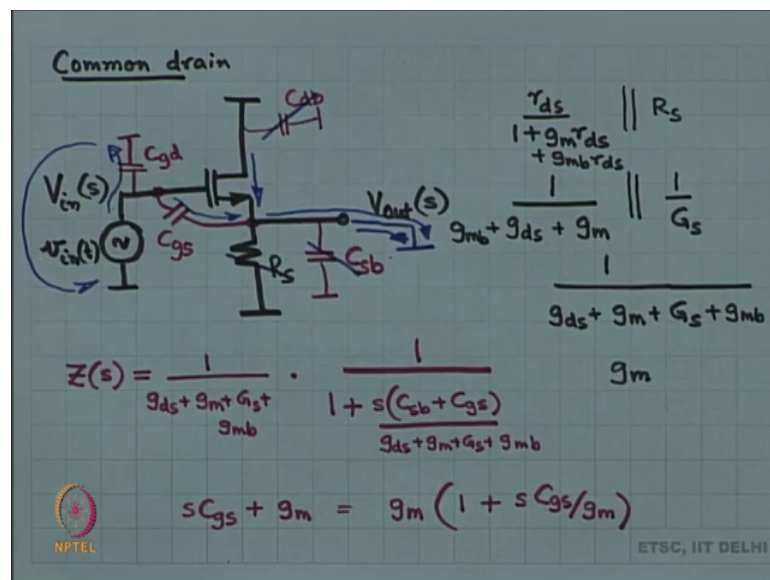 Common drain
Cdb
Cgd
Vin(s)
vin(t)
Cgs
Rs
Vout(s)
Csb
rds / (1 + gm rds + gmb rds) || Rs
1 / (gmb + gds + gm) || 1 / Gs
1 / (gds + gm + Gs + gmb)
gm
Z(s) = 1 / (gds + gm + Gs + gmb) · 1 / (1 + s(Csb + Cgs) / (gds + gm + Gs + gmb))
sCgs + gm = gm (1 + s Cgs/gm)
NPTEL
ETSC, IIT DELHI